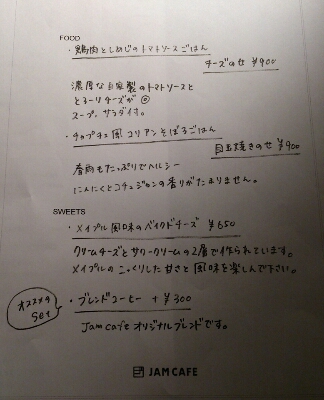 FOOD
・鶏肉としめじのトマトソースごはん
チーズのせ ¥900
濃厚な自家製のトマトソースと
とろーりチーズが◎
スープ、サラダ付。
・チャプチェ風コリアンそぼろごはん
目玉焼きのせ ¥900
春雨もたっぷりでヘルシー
にんにくとコチュジャンの香りがたまりません。
SWEETS
・メイプル風味のベイクドチーズ ¥650
クリームチーズとサワークリームの2層で作られています。
メイプルのこっくりした甘さと風味を楽しんで下さい。
オススメの
set
・ブレンドコーヒー +¥300
Jam cafe オリジナルブレンドです。
JAM CAFE